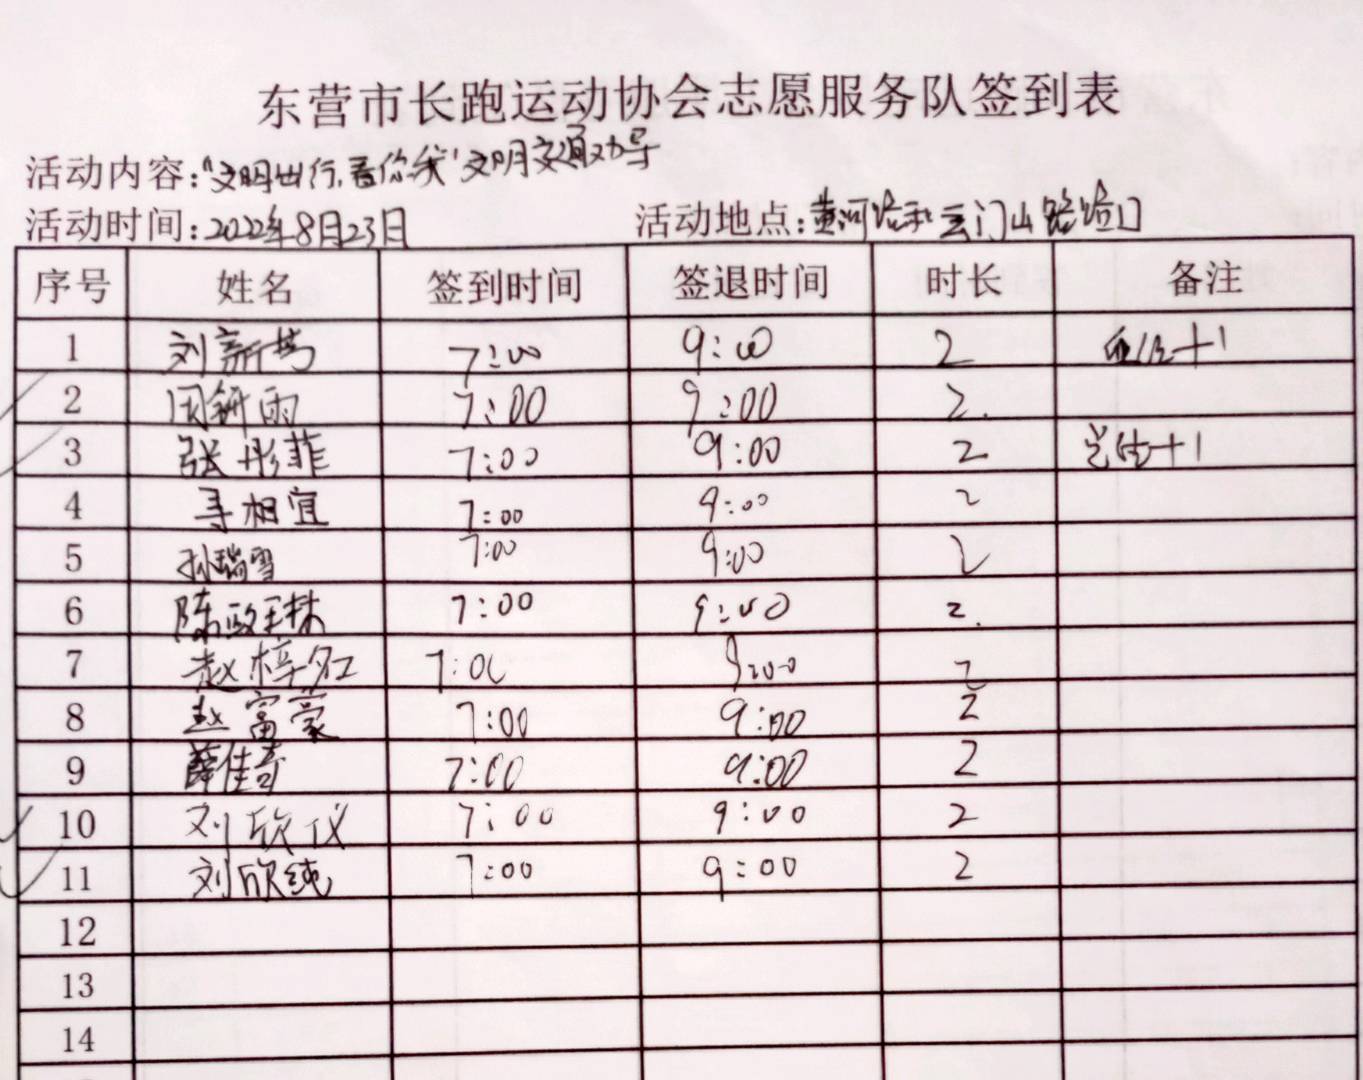 东营市长跑运动协会志愿服务队签到表
活动内容:"文明出行,看你我"文明交通劝导
活动时间:2022年8月23日 活动地点:黄河路和云门山路路口
序号 姓名 签到时间 签退时间 时长 备注
1 刘新 7:00 9:00 2 +1
2 雨 7:00 9:00 2.
3 张彤菲 7:00 9:00 2 +1
4 相宜 7:00 9:00 2
5 孙瑞雪 7:00 9:00 2
6 陈政 7:00 9:00 2.
7 赵梓名 7:00 9:00 2
8 赵富豪 7:00 9:00 2
9 薛佳奇 7:00 9:00 2
10 刘欣仪 7:00 9:00 2
11 刘欣纯 7:00 9:00 2
12
13
14